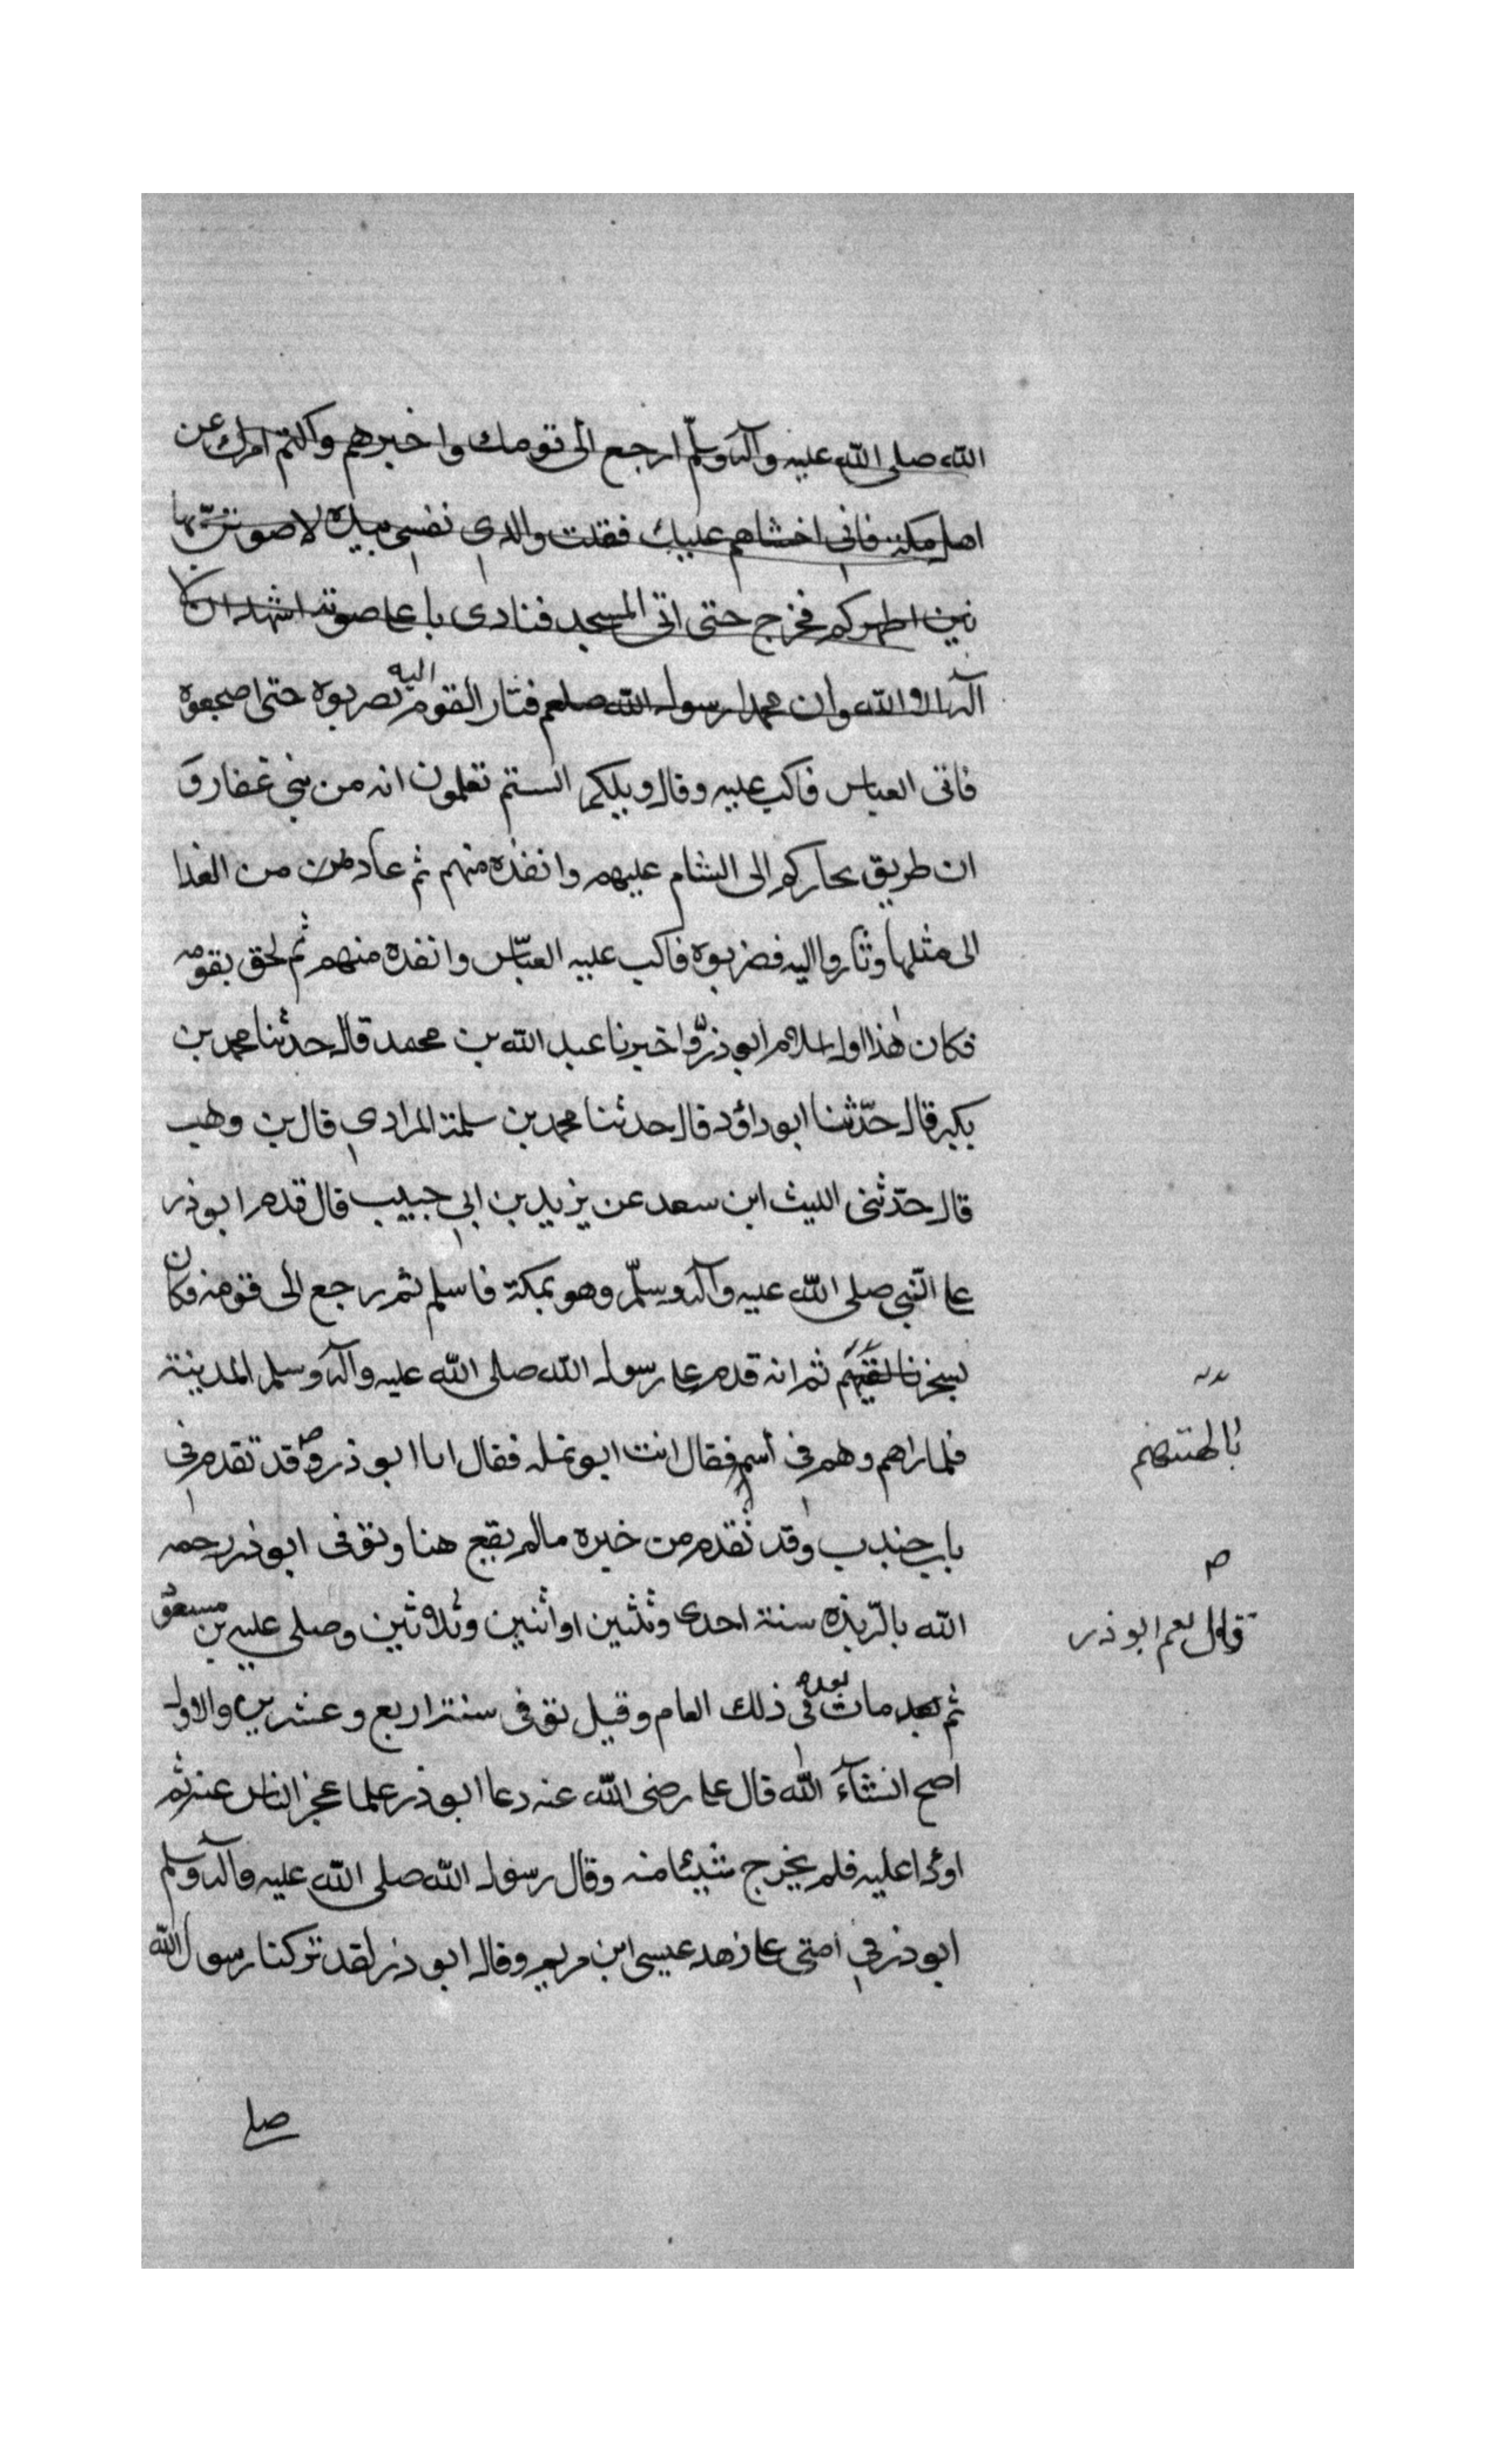 الله صلى الله عليه وآله وسلّم ارجع الى قومك واخبرهم واكتم امرك عن
اهل مكة فانى اخشاهم عليك فقلت والذي نفسي بيده لاصوتنّ بها
بين اظهركم فخرج حتى اتى المسجد فنادى باعلى صوته اشهد ان لا
اله الا الله وان محمدا رسول الله صلعم فثار القوم اليه بضربوه حتى اضجعوه
فاتى العباس فاكب عليه وقال ويلكم الستم تعلمون انه من بني غفار و
ان طريق تجاركم الى الشام عليهم وانقذه منهم ثم عاد من الغدا
الى مثلها وثاروا اليه فضربوه فاكب عليه العبّاس وانقذه منهم ثم لحق بقومه
فكان هذا اول اسلام ابو ذرّ واخبرنا عبد الله بن محمد قال حدثنا محمد بن
بكير قال حدّثنا ابو داؤد قال حدثنا محمد بن سلمة المرادي قال بن وهب
قال حدّثنى الليث ابن سعد عن يزيد بن ابي حبيب قال قدم ابو ذر
على النّبي صلى الله عليه وآله وسلّم وهو بمكة فاسلم ثم رجع الى قومه فكان
يسخر ثم انه قدم على رسول الله صلى الله عليه وآله وسلم المدينة
بالهتهم
فلما راهم وهم في اسمه فقال انت ابو نمله فقال انا ابو ذر وقد تقدم في
باب جندب وقد تقدم من خبره مالم يقع هنا وتوفى ابو ذر رحمه
الله بالرّبذه سنة احدى وثلثين او اثنين وثلاثين وصلى عليه بن مسعود
قال نعم ابو ذر
ثم مات بعده في ذلك العام وقيل توفى سنة اربع وعشرين والاول
اصح انشآء الله قال على رضى الله عنه دعا ابو ذر علما عجز الناس عنه ثم
اوكا عليه فلم يخرج شيئا منه وقال رسول الله صلى الله عليه وآله وسلم
ابو ذر في امتى على زهد عيسى ابن مريم وقال ابو ذر لقد تركنا رسول الله
صلى